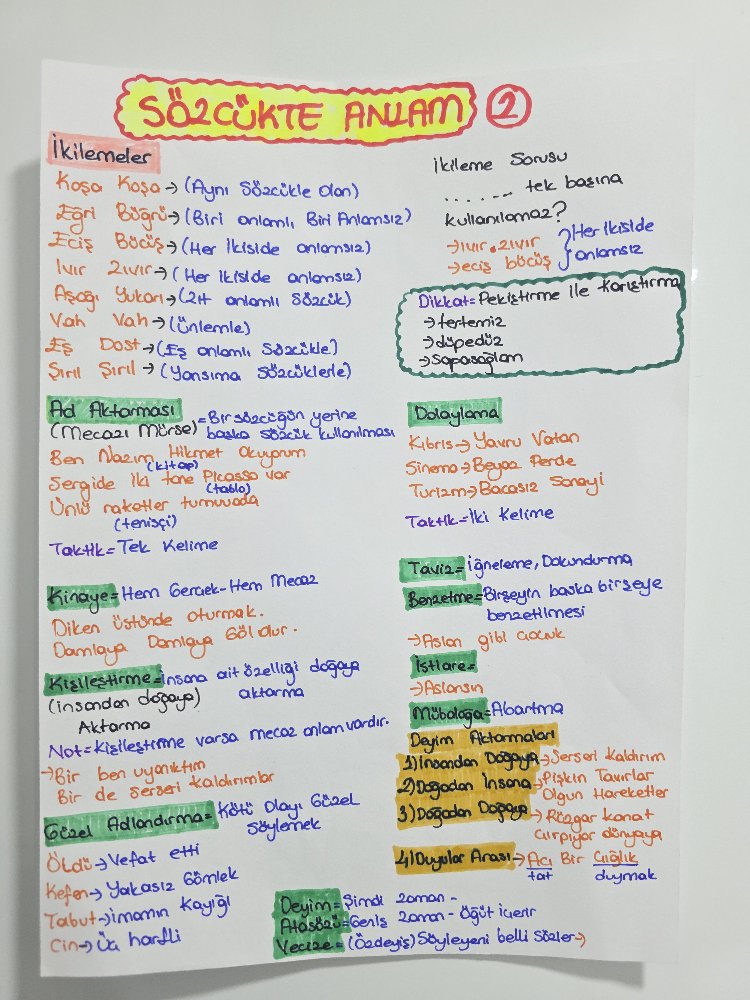 SÖZCÜKTE ANLAM 2
İkilemeler
Koşa Koşa → (Aynı Sözcükle Olan)
Eğri Büğrü → (Biri anlamlı, Biri Anlamsız)
Eciş Böcüş → (Her ikiside anlamsız)
Ivır Zıvır → (Her ikiside anlamsız)
Aşağı Yukarı → (Zıt anlamlı Sözcük)
Vah Vah → (Ünlemle)
Eş Dost → (Eş anlamlı Sözcükle)
Şırıl Şırıl → (Yansıma Sözcüklerle)
İkileme Sorusu
....... tek başına
kullanılamaz?
→ ıvır zıvır } Her ikiside
→ eciş böcüş anlamsız
Dikkat = Pekiştirme ile karıştırma
→ tertemiz
→ düpedüz
→ Sapasağlam
Ad Aktarması = Bir sözcüğün yerine
(Mecazı Mürse) başka sözcük kullanılması
Ben Nazım Hikmet Okuyorum
(kitap)
Sergide iki tane Picasso var
(tablo)
Ünlü raketler turnuvada
(tenisçi)
Taktik = Tek Kelime
Dolaylama
Kıbrıs → Yavru Vatan
Sinema → Beyaz Perde
Turizm → Bacasız Sanayi
Taktik = İki Kelime
Kinaye = Hem Gerçek - Hem Mecaz
Diken üstünde oturmak.
Damlaya Damlaya Göl olur.
Kişileştirme = insana ait özelliği doğaya
(insandan doğaya) aktarma
Aktarma
Not = Kişileştirme varsa mecaz anlam vardır.
→ Bir ben uyanıktım
Bir de serseri kaldırımlar
Güzel Adlandırma = Kötü Olayı Güzel
Söylemek
Öldü → Vefat etti
Kefen → Yakasız Gömlek
Tabut → imamın kayığı
Cin → Üç harfli
Taviz = iğneleme, Dokundurma
Benzetme = Birşeyin başka birşeye
benzetilmesi
→ Aslan gibi çocuk
İstiare =
→ Aslansın
Mübalağa = Abartma
Deyim Aktarmaları
1) İnsandan Doğaya → Serseri Kaldırım
2) Doğadan İnsana → Pişkin Tavırlar
Olgun Hareketler
3) Doğadan Doğaya → Rüzgar kanat
çırpıyor dünyaya
4) Duyular Arası → Acı Bir Çığlık
tat duymak
Deyim = Şimdi zaman -
Atasözü = Geniş zaman - Öğüt içerir
Vecize = (Özdeyiş) Söyleyeni belli Sözler →